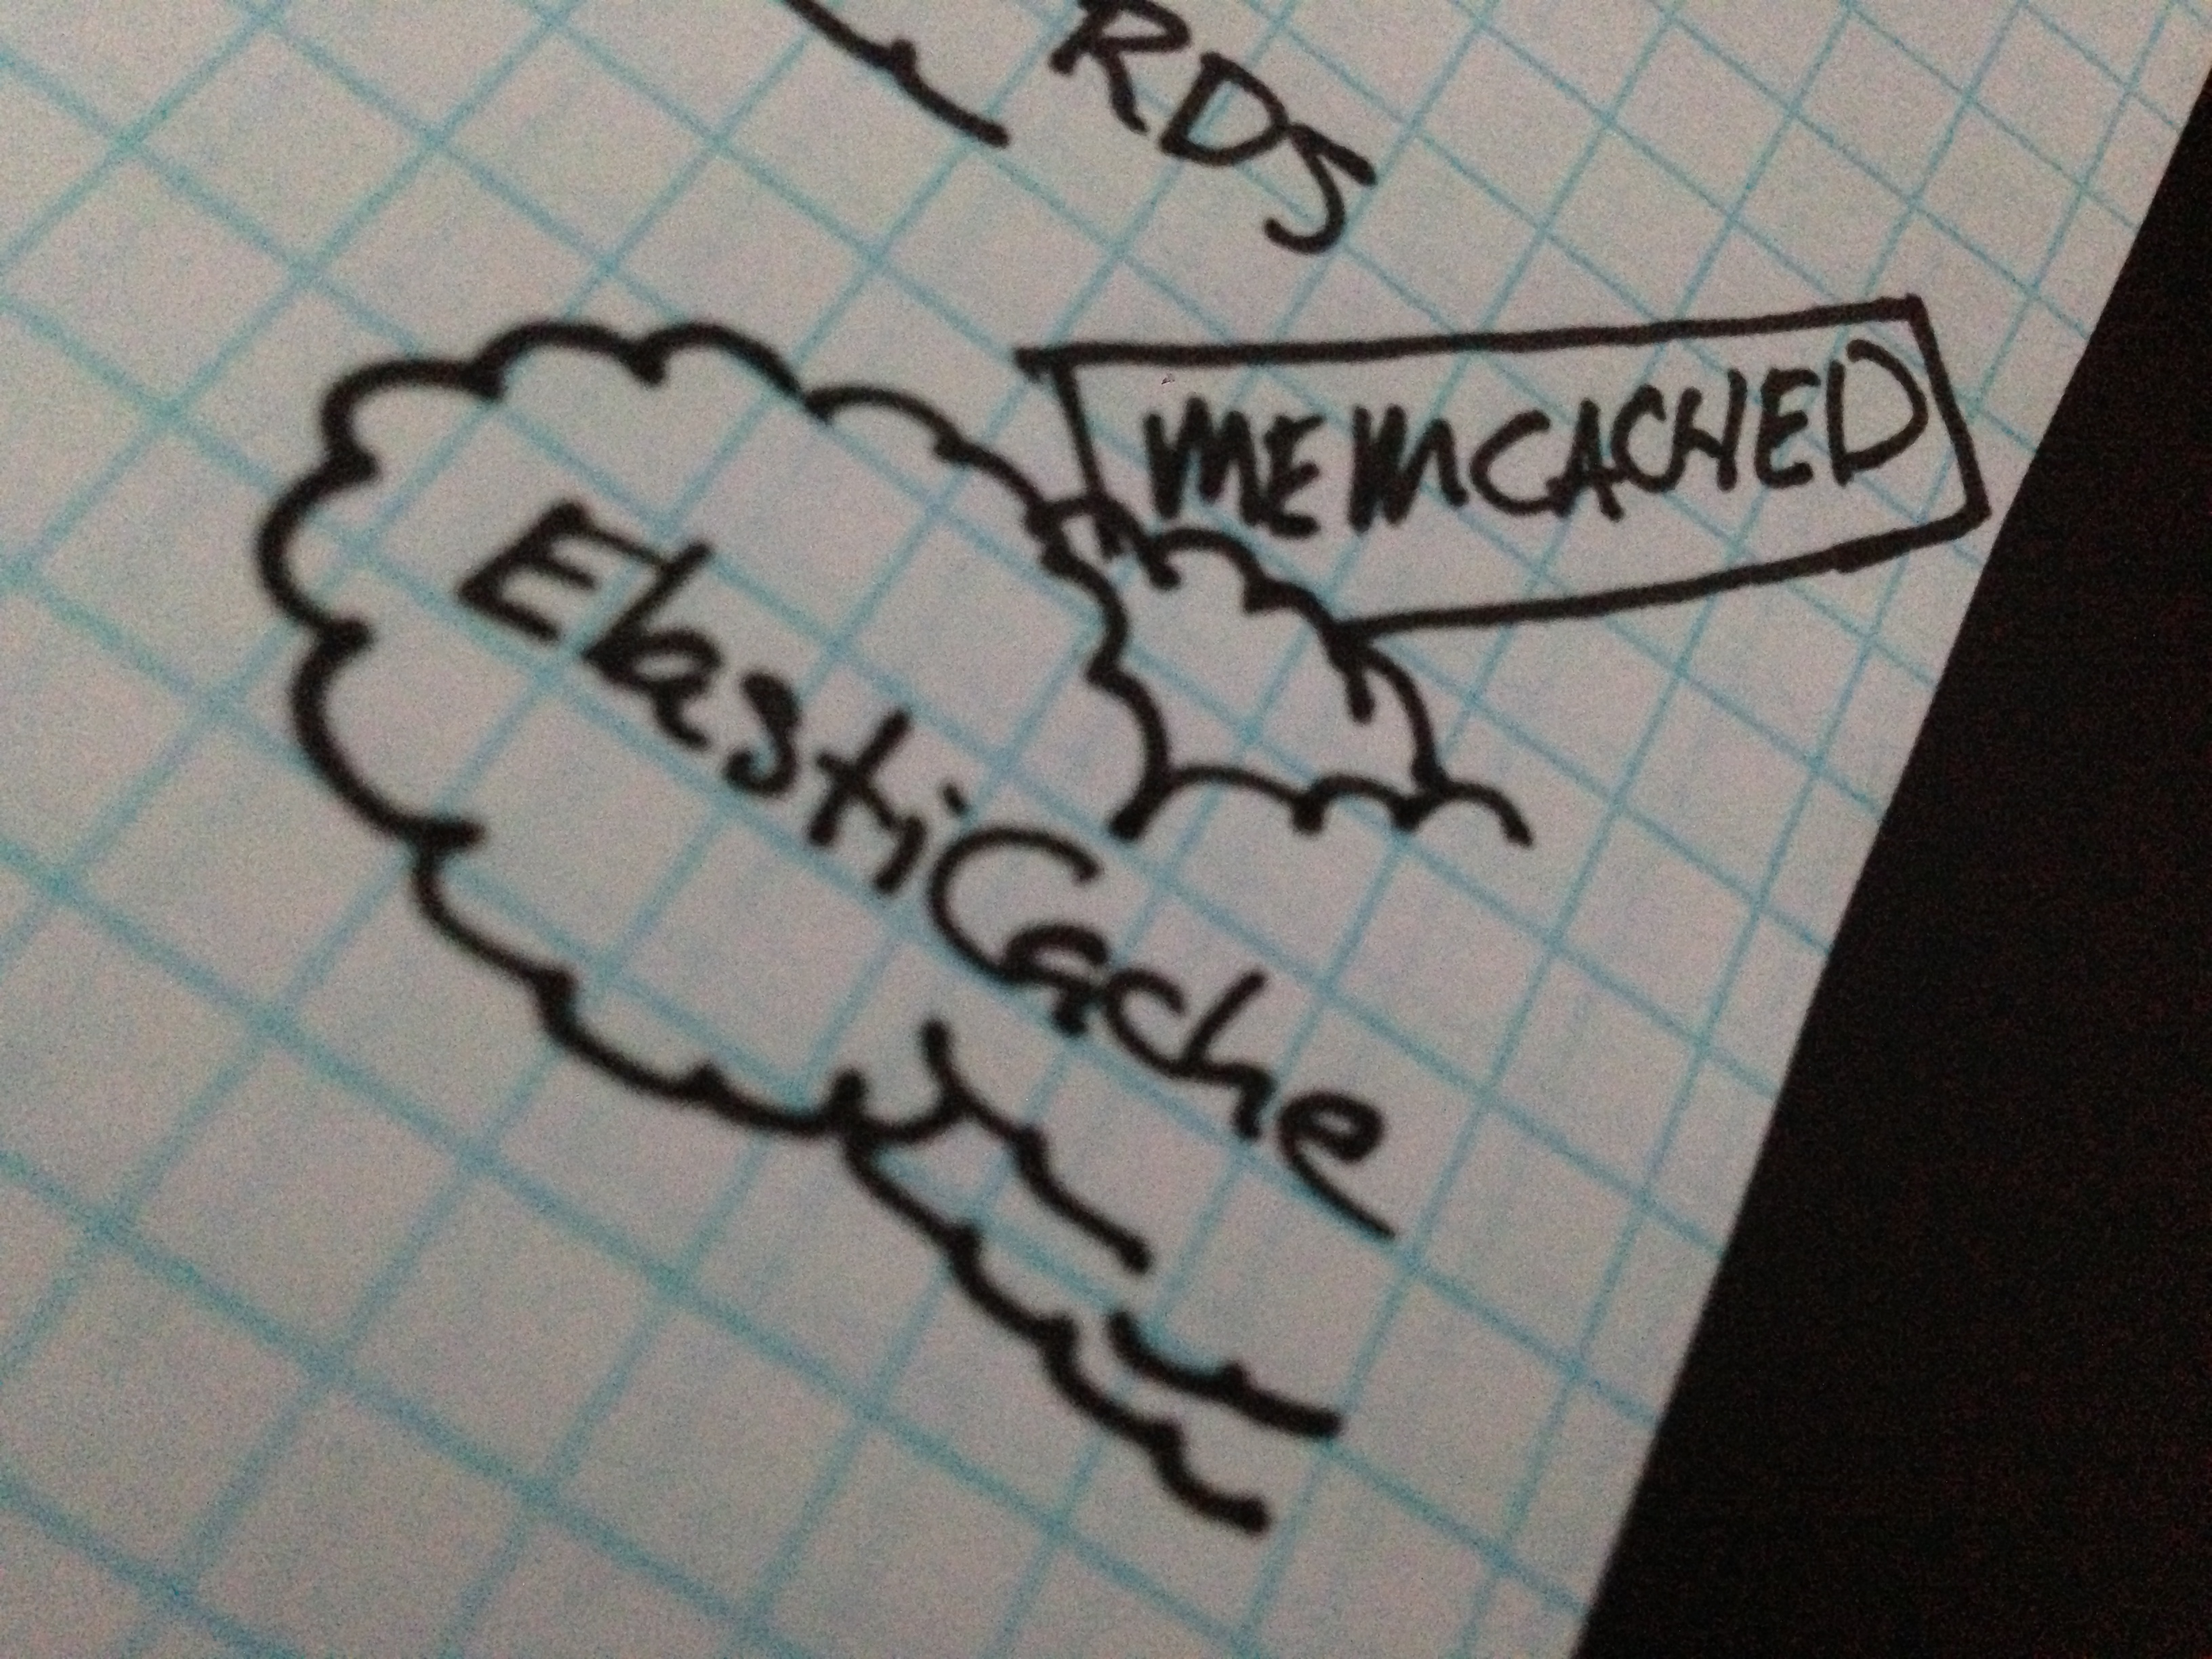 RDS
MEMCACHED
ElastiCache